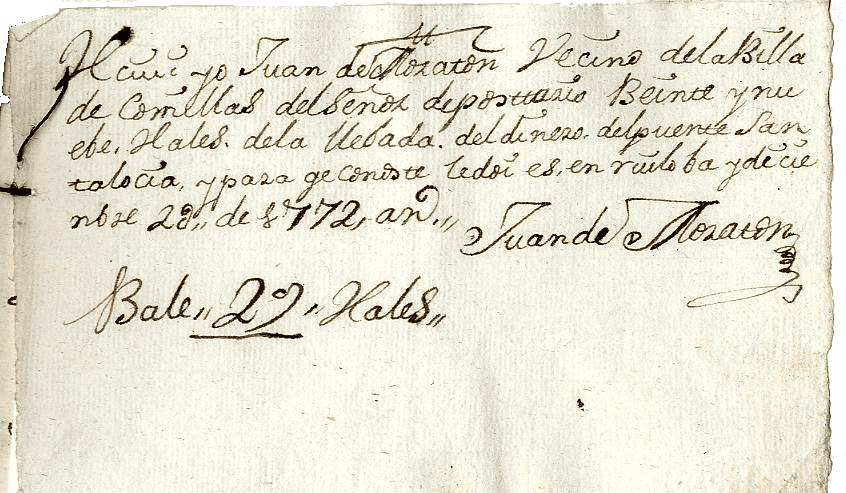 Rciui yo Juan de Moraton Vecino de la Billa
de Comillas del señor deposittario Beinte y nu
ebe, Rales. de la llebada. del dinero. del puente San
ta locia, y para qe conste le doi es, en ruiloba y dicie
nbre 28,, de 1772, an.,,
Juan de Moraton
Bale,, 29,, Rales,,